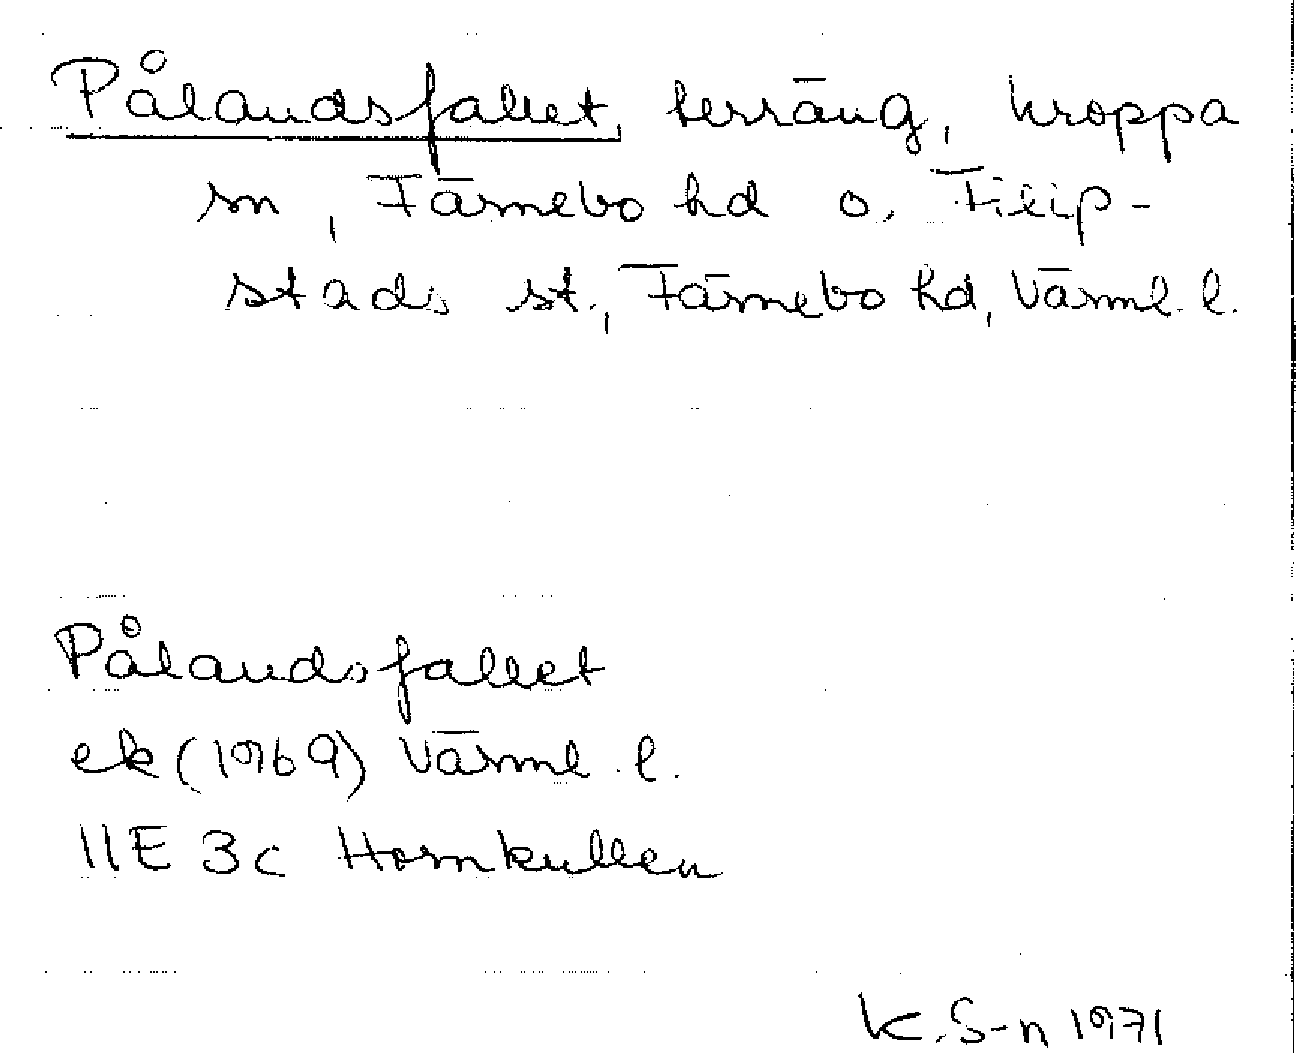 Pålandsfallet, terräng, Kroppa
sn, Färnebo hd o. Filip-
stads st., Färnebo hd, Värml. l.
Pålandsfallet
ek (1969) Värml. l.
11E 3c Hornkullen
K. S-n 1971